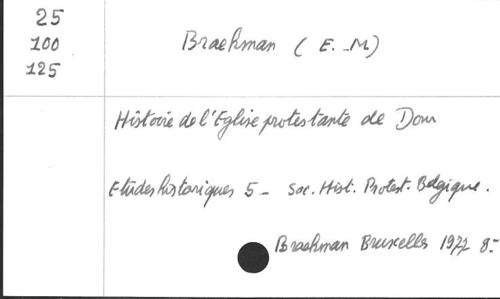 25
100
125
Braekman (E. M)
Histoire de l'Eglise protestante de Dour
Etudes historiques 5 - Soc. Hist. Protest. Belgique.
Braekman Bruxelles 1977 8-